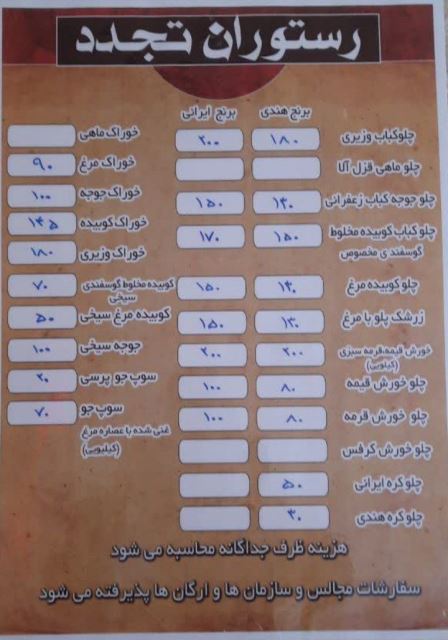 رستوران تجدد
برنج هندی برنج ایرانی
چلوکباب وزیری ۱۸۰ ۲۰۰
چلو ماهی قزل آلا
چلو جوجه کباب زعفرانی ۱۴۰ ۱۵۰
چلو کباب کوبیده مخلوط گوسفندی مخصوص ۱۵۰ ۱۷۰
چلو کوبیده مرغ ۱۴۰ ۱۵۰
زرشک پلو با مرغ ۱۳۰ ۱۵۰
خورش قیمه،قرمه سبزی (کیلویی) ۲۰۰ ۲۰۰
چلو خورش قیمه ۸۰ ۱۰۰
چلو خورش قرمه ۸۰ ۱۰۰
چلو خورش کرفس
چلو کره ایرانی ۵۰
چلو کره هندی ۳۰
خوراک ماهی
خوراک مرغ ۹۰
خوراک جوجه ۱۰۰
خوراک کوبیده ۱۴۵
خوراک وزیری ۱۸۰
کوبیده مخلوط گوسفندی سیخی ۷۰
کوبیده مرغ سیخی ۵۰
جوجه سیخی ۱۰۰
سوپ جو پرسی ۲۰
سوپ جو ۷۰
غنی شده با عصاره مرغ
(کیلویی)
هزینه ظرف جداگانه محاسبه می شود
سفارشات مجالس و سازمان ها و ارگان ها پذیرفته می شود